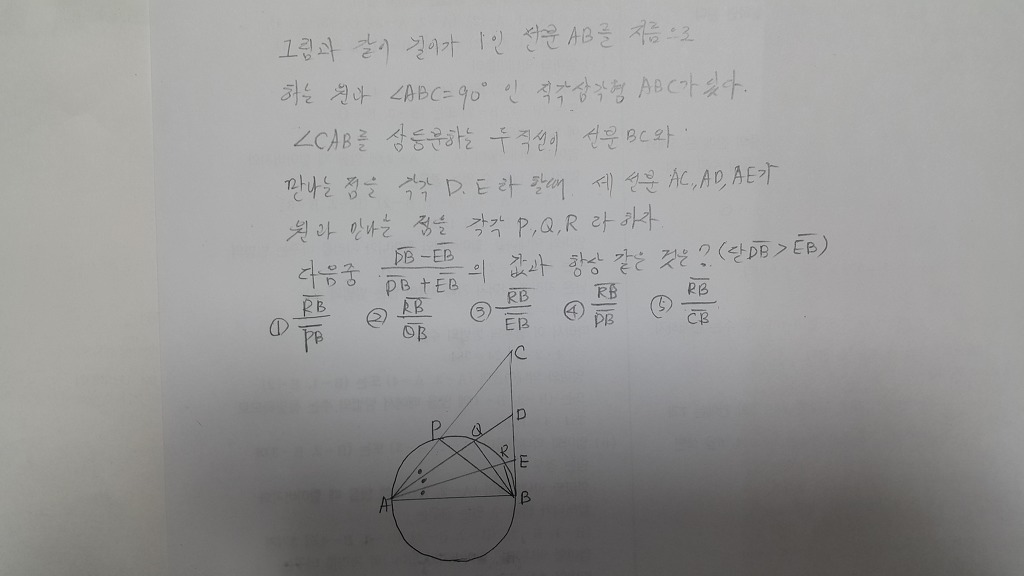 그림과 같이 길이가 1인 선분 AB를 지름으로
하는 원과 ∠ABC=90° 인 직각삼각형 ABC가 있다.
∠CAB를 삼등분하는 두 직선이 선분 BC와
만나는 점을 각각 D, E라 할때. 세 선분 AC, AD, AE가
원과 만나는 점을 각각 P, Q, R 라 하자
다음중 (DB - EB)/(DB + EB) 의 값과 항상 같은 것은? (단 DB > EB)
① RB/PB ② RB/QB ③ RB/EB ④ RB/DB ⑤ RB/CB
C
D
P Q
R E
A B